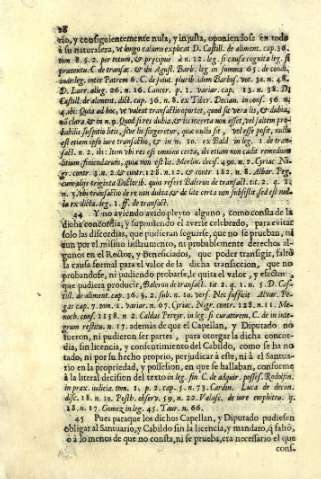 28
cio, y consiguientemente nula, y injusta, oponiendose en todo
à su naturaleza, ut longo calamo explicat D. Castill. de aliment. cap. 36.
tom. 8. §. 2. per totum, & præcipuè à n. 12. leg. si causa cognita leg. fi
praventu. C. de transact. & ibi August. Barb. leg. in summa 65. de condi.
inter Patrem 6. C. de paul. plurib. idem Barbos. vot. 30. n. 48.
D. Larr. alleg. 26. n. 16. Cancer. p. 1. variar. cap. 13. n. 38. D.
Castill. de aliment. dict. cap. 36. n. 8. ex Tiber. Decian. in cons. 56. n.
4. ibi: Quia ad hoc, ut valeat transactio oportet, quod sit vera lis, & dubia,
nõ clara, & in n. 9. Quod si res dubia, & lis incerta non esset, vel saltem pro-
babilis suspitio litis, sive lis fingeretur, quæ nulla sit, vel esse posse, nulla
est etiam ipso iure transactio, & in n. 10. ex Bald in leg. 1. de trans-
act. n. 2. ibi: Item ubi res est omnino certa, ubi etiam non cadit remedium
litium finiendarum, quia non est lis. Merlin. decis. 490. n. 2. Cyriac. Ni-
gr. contr. 3. n. 2. & contr. 128. n. 12. & contr. 182. n. 8. Albar. Peg.
cumaliis triginta Doctorib. quos refert Baleron de transact. tit. 2. q. 1.
n. 3. ubi transactio de re non dubia, & de lite certa non subsistit, sed est nul-
la ex dicta. leg. 1. ff. de transact.
44 Y no aviendo avido pleyto alguno, como consta de la
dicha concordia, y suponiendo el averse celebrado, para evitar
solo las discordias, que pudieran seguirse, que no se prueban, ni
aun por el mismo instrumento, ni probablemente derechos al-
gunos en el Rector, y Beneficiados, que poder transigir, faltò
la causa formal para el valor de la dicha transaccion, que no
probandose, ni pudiendo probarse, le quita el valor, y efectos
que pudiera producir, Baleron de transact. tit. 2. q. 1. n. 5. D. Cas-
till. de aliment. cap. 36. §. 2. sub n. 10. vers. Nec sufficit Alvar. Pe-
gas cap. 7. tom. 1. variar. n. 67. Cyriac. Nigr. contr. 128. n. 11. Me-
noch. cons. 1158. n. 2. Caldas Pereyr. in leg. si curatorem. C. de in integ-
rum restitu. n. 17. ademàs de que el Capellan, y Diputado no
fueron, ni pudieron ser partes, para otorgar la dicha concor-
dia, sin licencia, y consentimiento del Cabildo, como se ha no-
tado, ni por su hecho proprio, perjudicar à este, ni à el Santua-
rio en la propriedad, y possession, en que se hallaban, conforme
à la literal decision del texto in leg. fin C. de adquir. posses. Rodulfin.
in prax. iudicia. tom. 1. p. 2. cap. 5. n. 73. Cardin. Luca de decan.
disc. 18. n. 10. Posth. observ. 59. n. 22. Valasc. de iure emphiteu. q.
28. n. 17. Gomez in leg. 45. Taur. n. 66.
45 Pues para que los dichos Capellan, y Diputado pudiesen
obligar al Santuario, y Cabildo sin la licencia, y mandato, q faltò,
ò à lo menos de que no consta, ni se prueba, era necessario el que
cons-